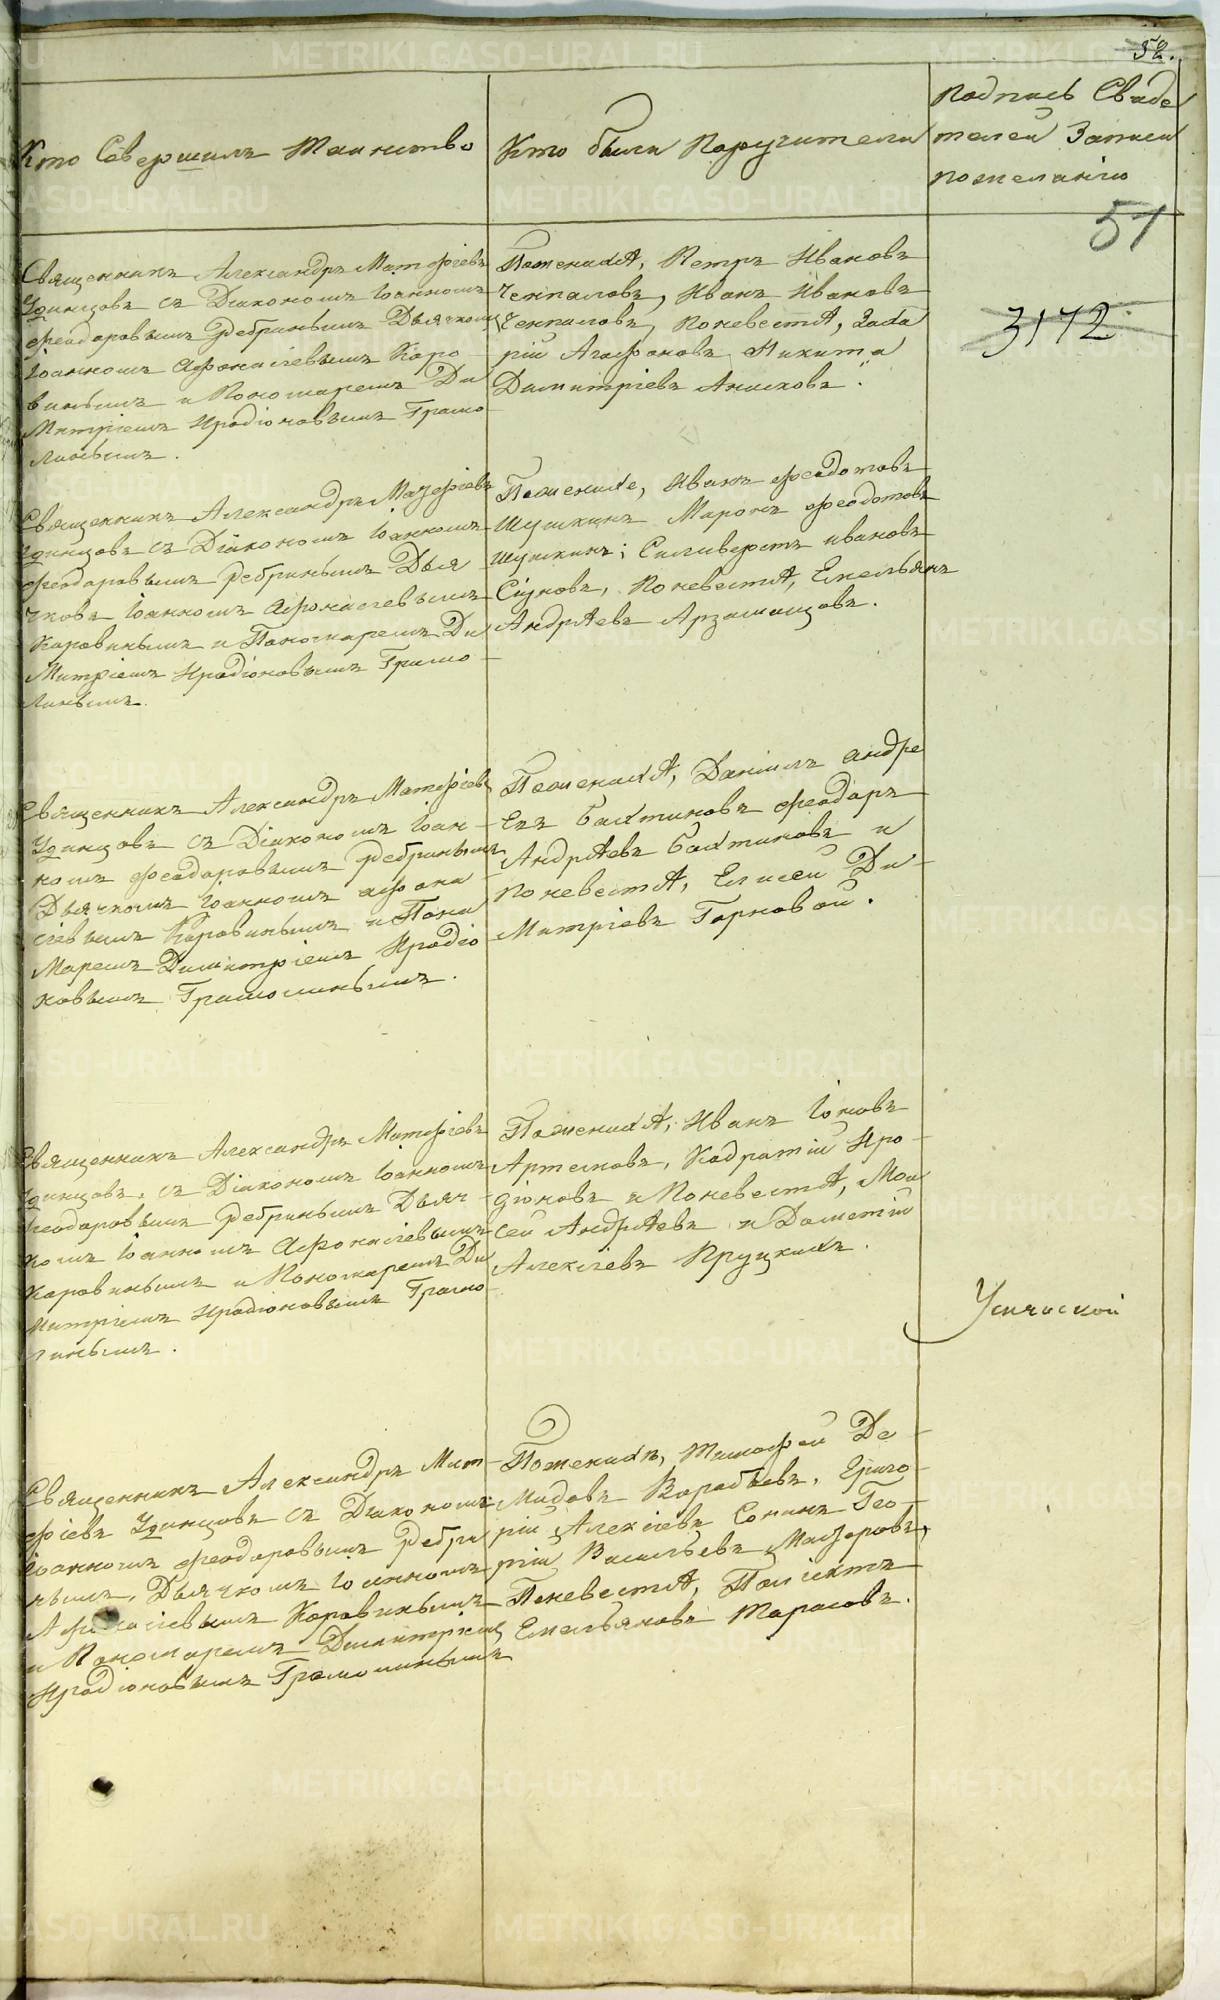 52.
Кто Совершилъ Таинство
Кто были Поручители
Подпись Свиде
телей Записи
пожеланiю
51
3172
Священникъ Александръ Матфѣевъ
Удинцовъ съ Дiакономъ Iоанномъ
Феодоровымъ Ребринымъ Дьячкомъ
Iоанномъ Афонасiевымъ Коро
винымъ и Пономаремъ Ди
Митрiемъ Иродiоновымъ Грамо
линымъ.
Поженихѣ, Петръ Ивановъ
Ченпаловъ, Иванъ Ивановъ
Ченпаловъ, Поневестѣ, Заха
рiй Агафоновъ Никита
Димитрiевъ Анисковъ.
Священникъ Александръ Матфѣевъ
Удинцовъ съ Дiакономъ Iоанномъ
Феодоровымъ Ребринымъ Дья
чковъ Iоанномъ Афонасiевымъ
Коровинымъ и Паномаремъ Ди
Митрiемъ Иродiоновымъ Грамо
линымъ.
Поженихе, Иванъ Феодотовъ
Шушкинъ Миронъ Феодотовъ
шушкинъ; Силиверстъ ивановъ
Сiуновъ, Поневестѣ, Емельянъ
Андрѣевъ Арзамазцовъ.
Священникъ Александръ Матфѣевъ
Удинцовъ съ Дiакономъ Iоан
номъ Феодоровымъ Ребринымъ
Дьячкомъ Iоанномъ Афона
сiевымъ Коровинымъ и Поно
Маремъ Димитрiемъ Иродiо
новымъ Грамолинымъ.
Поженихѣ, Данiилъ Андре
евъ Бахтиновъ Феодоръ
Андрѣевъ Бахтиновъ и
поневестѣ, Елисей Ди
Митрiевъ Горновой.
Священникъ Александръ Матфѣевъ
Удинцовъ, съ Дiакономъ Iоанномъ
Феодоровымъ Ребринымъ Дьяч
комъ Iоанномъ Афонасiевымъ
Коровинымъ и Пономаремъ Ди
Митрiемъ Иродiоновымъ Грамо
линымъ.
Поженихѣ, Иванъ Iоновъ
Артемовъ, Кодратiй Иро
дiоновъ и Поневестѣ, Мои
сей Андрѣевъ и Дометiй
Алексiевъ Пруцкихъ.
Усичоской
Священникъ Александръ Мат
фiевъ Удинцовъ съ Дiакономъ
Iоанномъ Феодоровымъ Ребри
нымъ, Дьячкомъ Iоанномъ
Афонасiевымъ Коровинымъ
и Пономаремъ Димитрiемъ
Иродiоновымъ Грамолинымъ
Поженихѣ, Тимофей Де
Мидовъ Воробьевъ, Григо
рiй Алексiевъ Сонинъ Гео
ргiй Васильевъ Мазоровъ,
Поневестѣ, Полiектъ
Емельяновъ Тарасовъ.